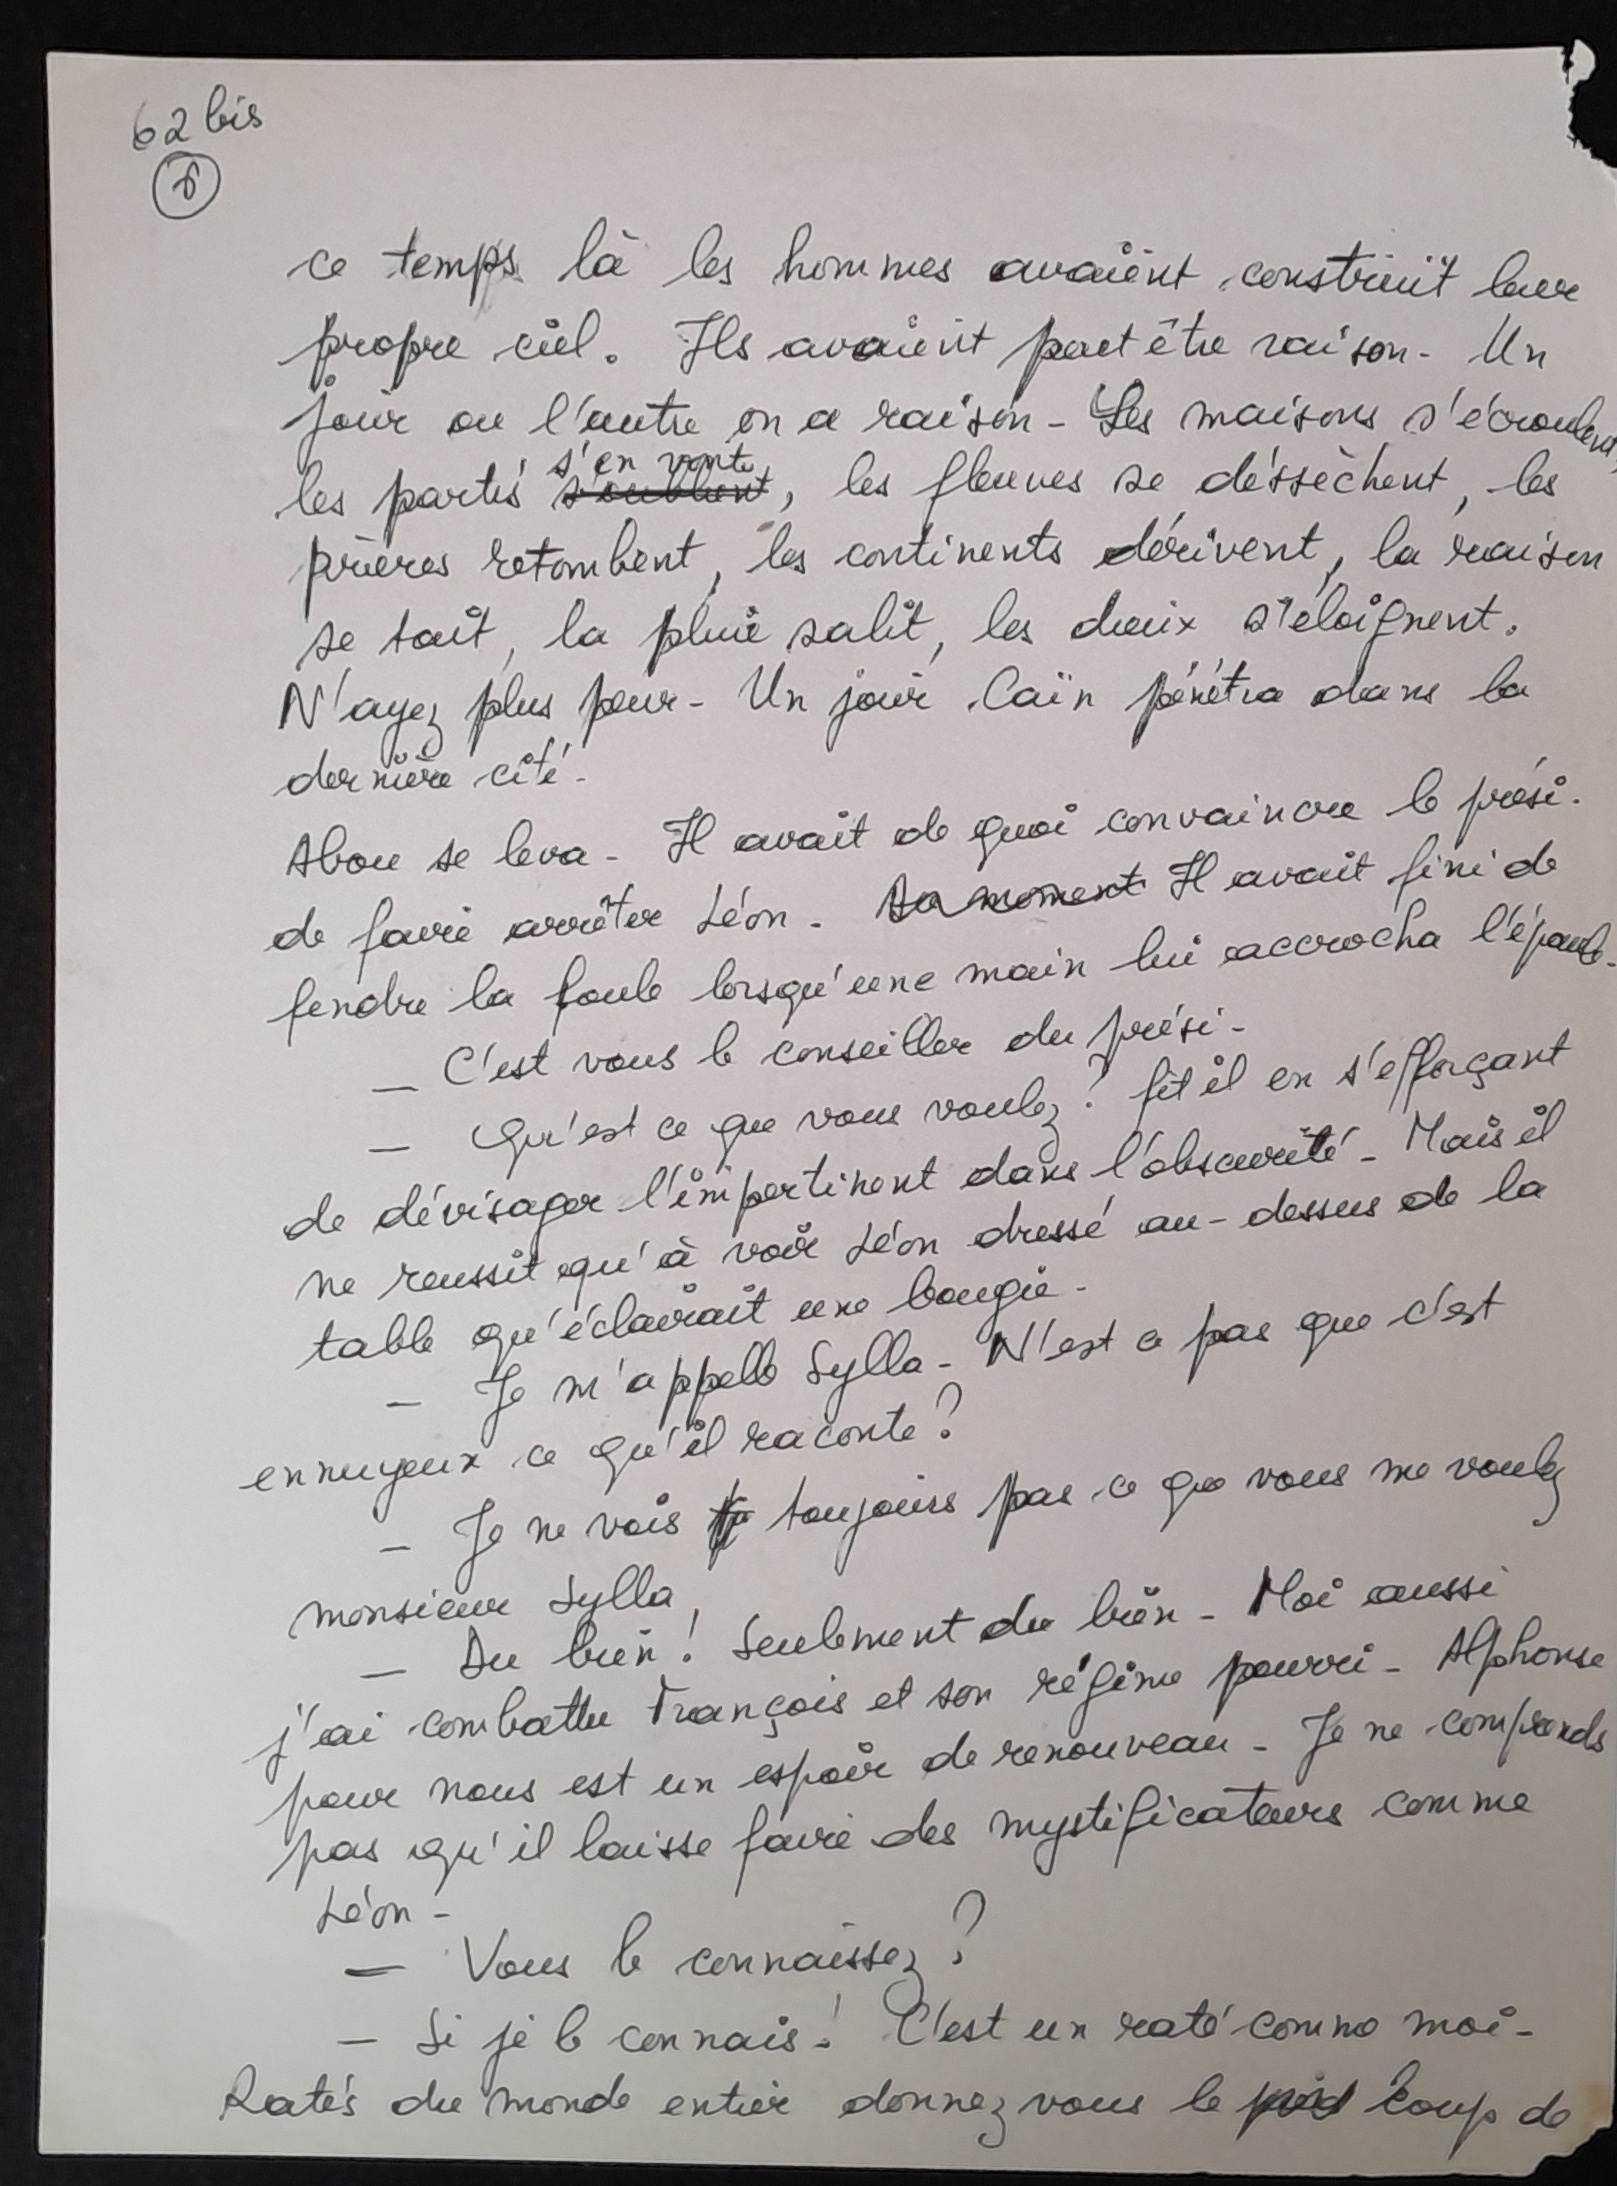 62 bis
ce temps là les hommes avaient construit leur
propre ciel. Ils avaient peut être raison - Un
jour ou l'autre on a raison - Les maisons s'écroulent,
s'en vont
les partis s'oublient, les fleuves se déssèchent, les
prières retombent, les continents dérivent, la raison
se tait, la pluie salit, les dieux s'éloignent.
N'ayez plus peur - Un jour Caïn pénétra dans la
dernière cité -
Abou se leva - Il avait de quoi convaincre le prési.
de faire arrêter Léon - Au moment Il avait fini de
fendre la foule lorsqu'une main lui accrocha l'épaule -
— C'est vous le conseiller du prési -
— Qu'est ce que vous voulez ? fit il en s'efforçant
de dévisager l'impertinent dans l'obscurité - Mais il
ne reussit qu'à voir Léon dressé au-dessus de la
table qu'éclairait une bougie -
— Je m'appelle Sylla - N'est ce pas que c'est
ennuyeux ce qu'il raconte ?
— Je ne vois toujours pas ce que vous me voulez
monsieur Sylla,
— Du bien ! Seulement du bien - Moi aussi
j'ai combattu François et son régime pourri - Alphonse
pour nous est un espoir de renouveau - Je ne comprends
pas qu'il laisse faire des mystificateurs comme
Léon -
— Vous le connaissez ?
— Si je le connais ! C'est un raté comme moi -
Ratés du monde entier donnez vous le coup de